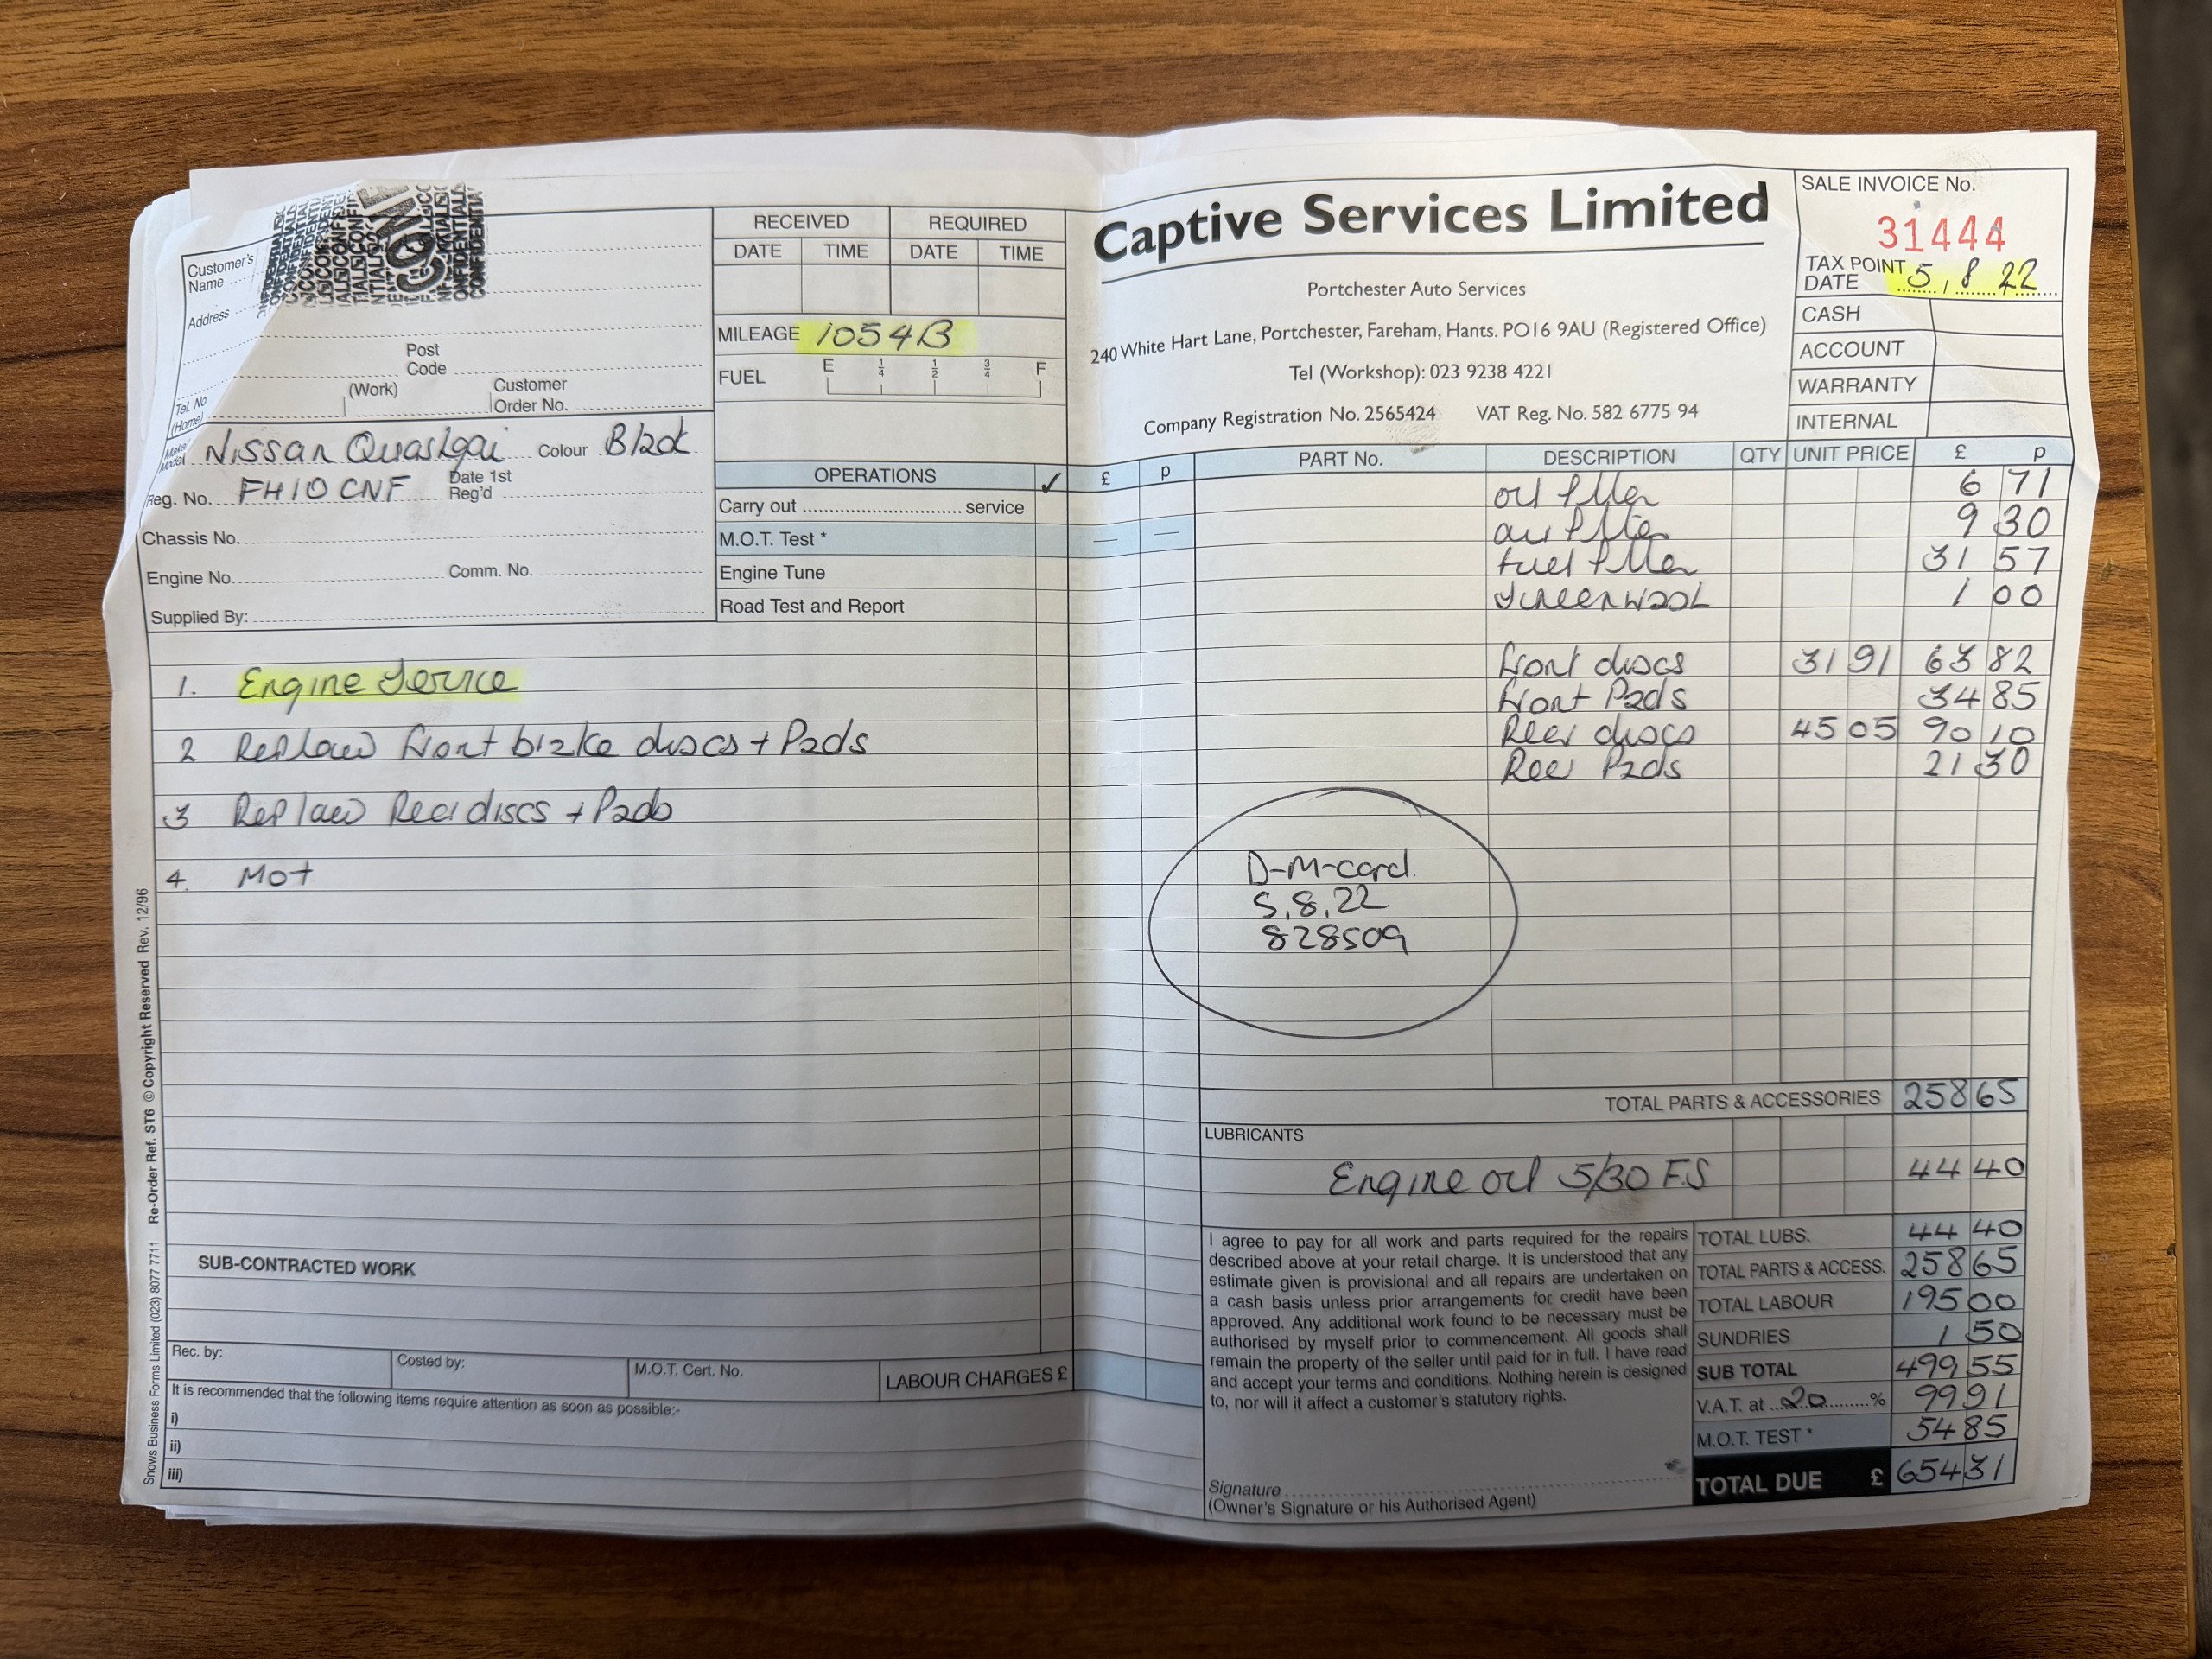 Customer's
Name
Address
Post
Code
(Work)
Customer
Order No.
Tel. No.
(Home)
Make/
Model Nissan Quashgai Colour Black
Reg. No. FH10 CNF Date 1st
Reg'd
Chassis No.
Engine No. Comm. No.
Supplied By:
CONFIDENTIAL
RECEIVED REQUIRED
DATE TIME DATE TIME
MILEAGE 1054B
FUEL E 1/4 1/2 3/4 F
OPERATIONS ✓ £ p
Carry out service
M.O.T. Test * — —
Engine Tune
Road Test and Report
1. Engine Service
2 Replace front brake discs + Pads
3 Replace Rear discs + Pads
4. Mot
SUB-CONTRACTED WORK
Rec. by: Costed by: M.O.T. Cert. No. LABOUR CHARGES £
It is recommended that the following items require attention as soon as possible:-
i)
ii)
iii)
Snows Business Forms Limited (023) 8077 7711 Re-Order Ref. ST6 © Copyright Reserved Rev. 12/96
Captive Services Limited
Portchester Auto Services
240 White Hart Lane, Portchester, Fareham, Hants. PO16 9AU (Registered Office)
Tel (Workshop): 023 9238 4221
Company Registration No. 2565424 VAT Reg. No. 582 6775 94
SALE INVOICE No.
31444
TAX POINT
DATE 5,8 22
CASH
ACCOUNT
WARRANTY
INTERNAL
PART No. DESCRIPTION QTY UNIT PRICE £ p
oil filter 6 71
air filter 9 30
fuel filter 31 57
screenwash 1 00
front discs 31 91 63 82
front Pads 34 85
Rear discs 45 05 90 10
Rear Pads 21 30
D-M-card.
5.8.22
828509
TOTAL PARTS & ACCESSORIES 258 65
LUBRICANTS
Engine oil 5/30 F.S 44 40
I agree to pay for all work and parts required for the repairs
described above at your retail charge. It is understood that any
estimate given is provisional and all repairs are undertaken on
a cash basis unless prior arrangements for credit have been
approved. Any additional work found to be necessary must be
authorised by myself prior to commencement. All goods shall
remain the property of the seller until paid for in full. I have read
and accept your terms and conditions. Nothing herein is designed
to, nor will it affect a customer's statutory rights.
Signature
(Owner's Signature or his Authorised Agent)
TOTAL LUBS. 44 40
TOTAL PARTS & ACCESS. 258 65
TOTAL LABOUR 195 00
SUNDRIES 1 50
SUB TOTAL 499 55
V.A.T. at 20 % 99 91
M.O.T. TEST * 54 85
TOTAL DUE £ 654 31